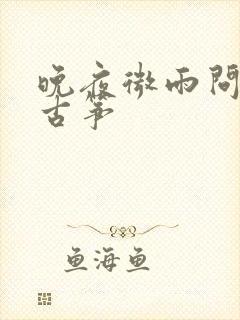 晚夜微雨問
古箏
鱼海鱼